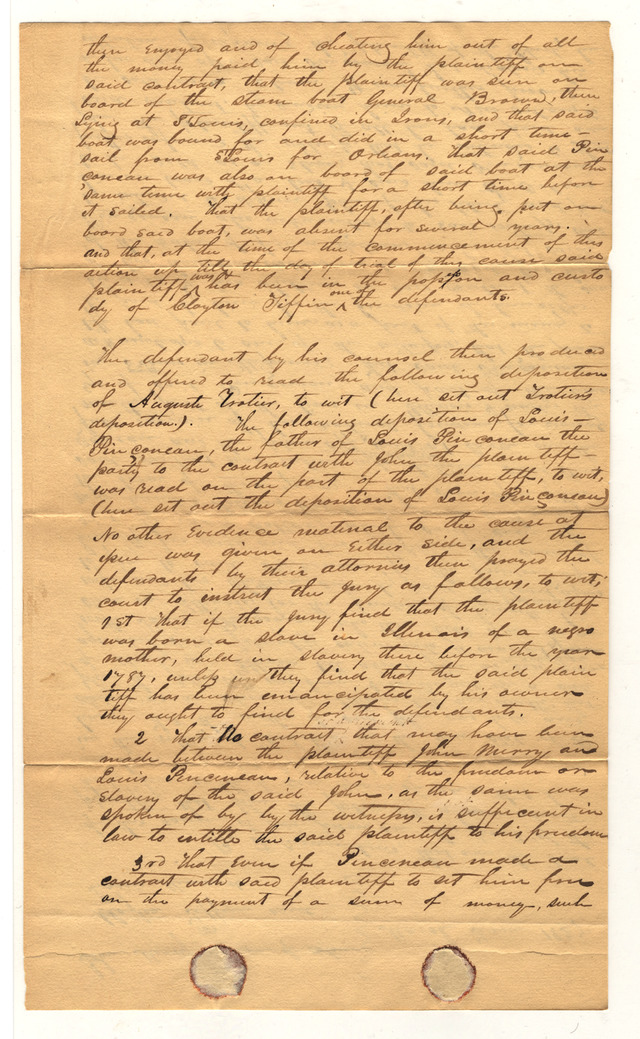 then enjoyed and of cheating him out of all
the money paid him by the plaintiff on
said contract, that the plaintiff was seen on
board of the steam boat General Brown, then
lying at St Louis, confined in Irons, and that said
boat was bound for and did in a short time
sail from St Louis for Orleans. That said Pin
çoneau was also on board of said boat at the
same time with plaintiff for a short time before
it sailed. That the plaintiff, after being put on
board said boat, was absent for several years.
and that, at the time of the commencement of this
action up till the day of trial of this cause said
plaintiff was & has been in the posson and custo
dy of Clayton Tiffin one of the defendants.
The defendant by his counsel then produced
and offered to read the following deposition
of Auguste Trotier, to wit (here set out Trotier's
deposition.). The following deposition of Louis
Pinçoneau, the father of Louis Pinçoneau the
party to the contract with John the plaintiff
was read on the part of the plaintiff, to wit,
(here set out the deposition of Louis Pinçoneau)
No other Evidence material to the cause at
issue was given on Either Side, and the
defendants by their attornies then prayed the
court to instruct the jury as follows, to wit;
1st That if the jury find that the plaintiff
was born a slave in Illinois of a negro
mother, held in slavery there before the year
1787, unless they find that the said plain
tiff has been emancipated by his owner
they ought to find for the defendants.
2 That No contract that may have been
made between the plaintiff John Merry and
Louis Pinceneau, relative to the freedom or
slavery of the said John, as the same was
spoken of by by the witness, is sufficent in
law to entitle the said plaintiff to his freedom
3rd That Even if Pinceneau made a
contract with said plaintiff to set him free
on the payment of a sum of money, such